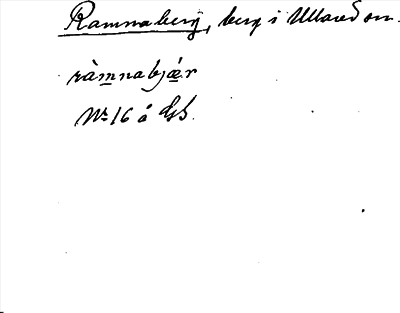 Ramnaberg, berg i Ullared sn.
ràmnabjǽr
Nr 16 å Gb.